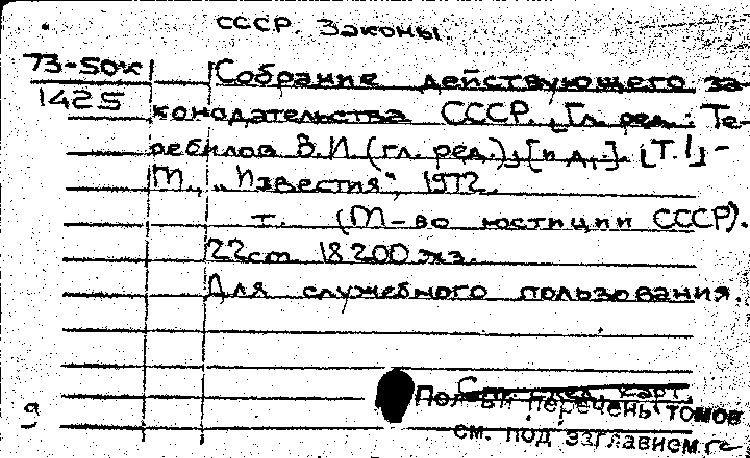 СССР. Законы.
73-50к
1425
Собрание действующего за-
конодательства СССР. [Гл. ред.: Те-
ребилов В.И. (гл. ред.), [и др.]. [Т. 1] -
М., "Известия", 1972.
т. (М-во юстиции СССР).
22см 18200 экз.
Для служебного пользования.
Полный перечень томов
см. под заглавием